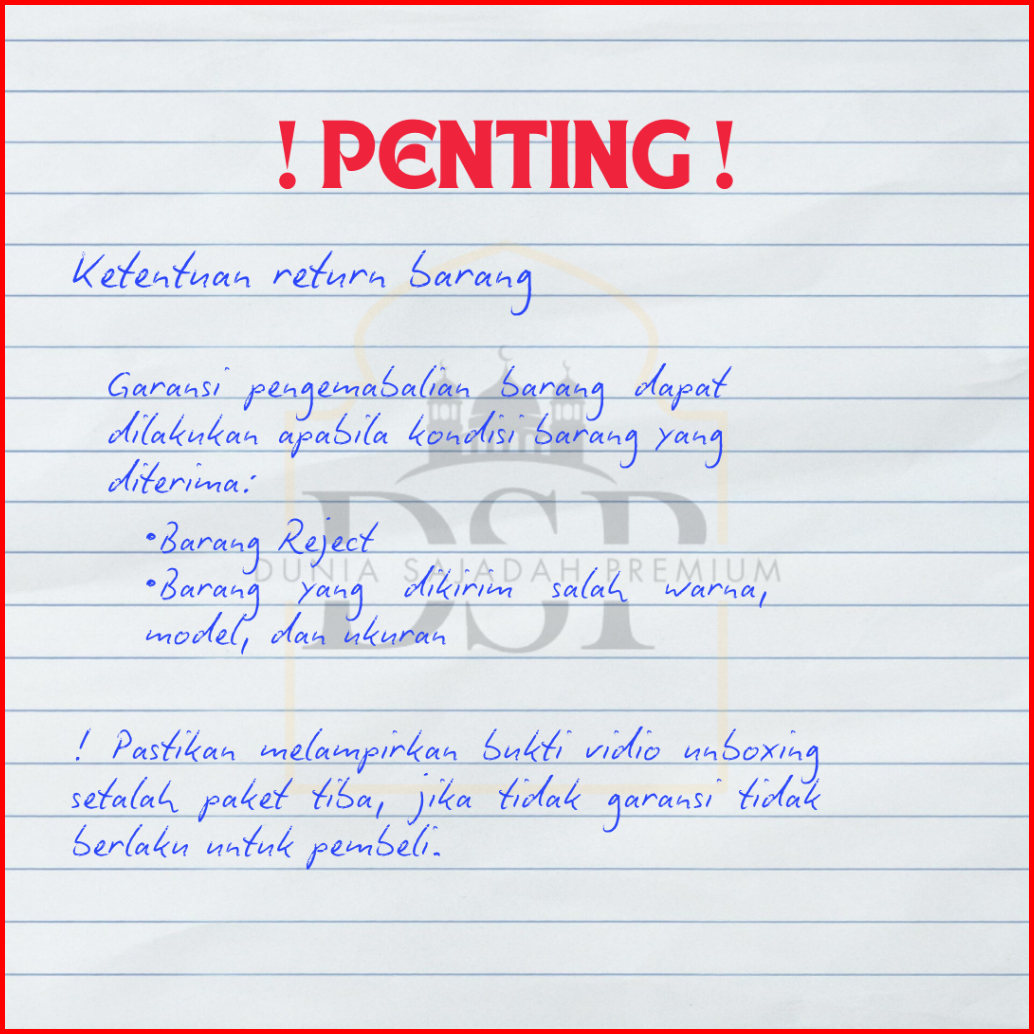 ! PENTING !
Ketentuan return barang
Garansi pengemabalian barang dapat
dilakukan apabila kondisi barang yang
diterima:
•Barang Reject
DUNIA SAJADAH PREMIUM
•Barang yang dikirim salah warna,
model, dan ukuran
DSP
! Pastikan melampirkan bukti vidio unboxing
setalah paket tiba, jika tidak garansi tidak
berlaku untuk pembeli.